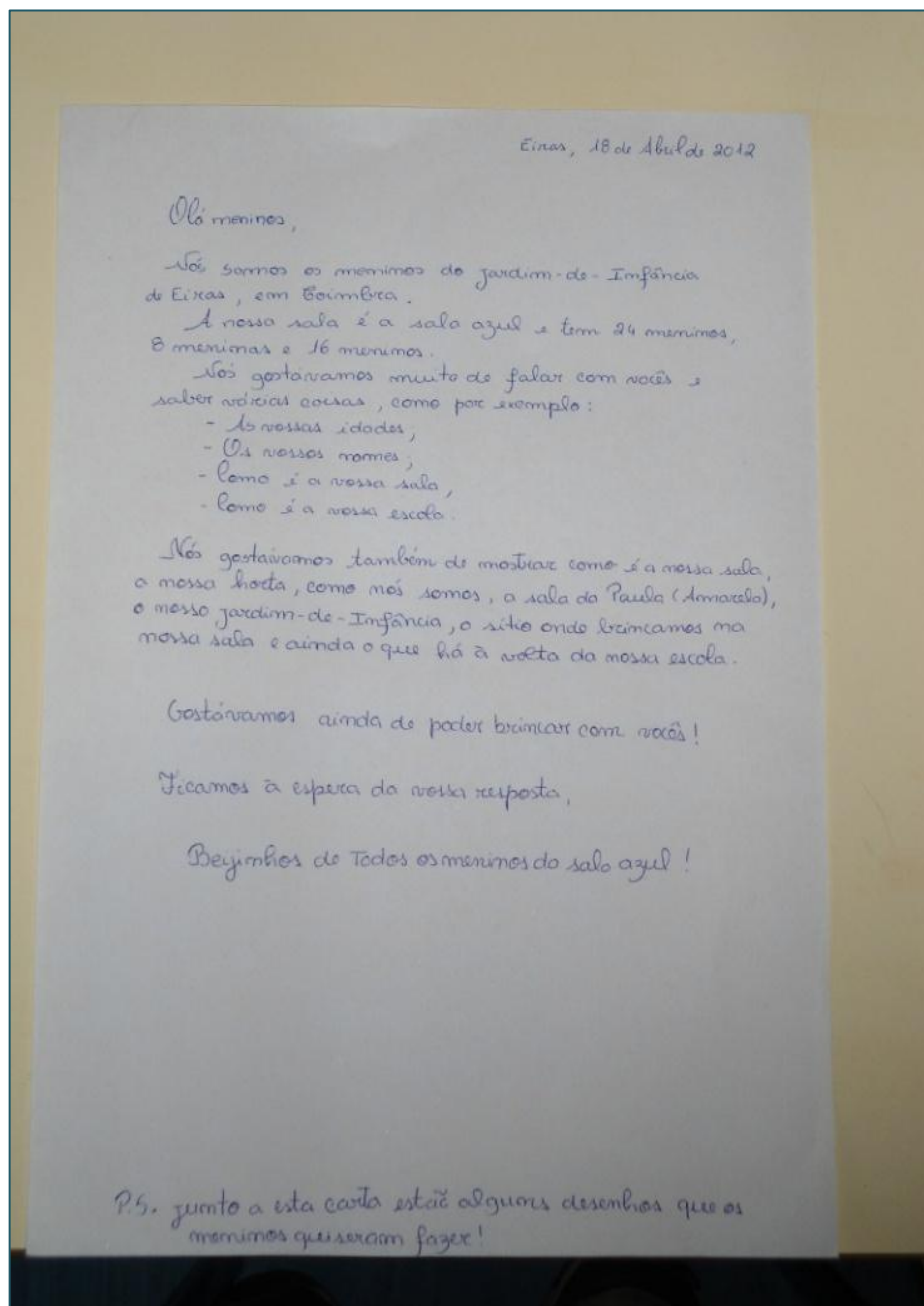 Eiras, 18 de Abril de 2012
Olá meninos,
Nós somos os meninos do jardim-de-Infância
de Eiras, em Coimbra.
A nossa sala é a sala azul e tem 24 meninos,
8 meninas e 16 meninos.
Nós gostávamos muito de falar com vocês e
saber várias coisas, como por exemplo:
- As vossas idades;
- Os vossos nomes;
- Como é a vossa sala,
- Como é a vossa escola.
Nós gostávamos também de mostrar como é a nossa sala,
a nossa horta, como nós somos, a sala da Paula (Amarela),
o nosso jardim-de-Infância, o sítio onde brincamos na
nossa sala e ainda o que há à volta da nossa escola.
Gostávamos ainda de poder brincar com vocês!
Ficamos à espera da vossa resposta,
Beijinhos de Todos os meninos da sala azul!
P.S. junto a esta carta estão alguns desenhos que os
meninos quiseram fazer!